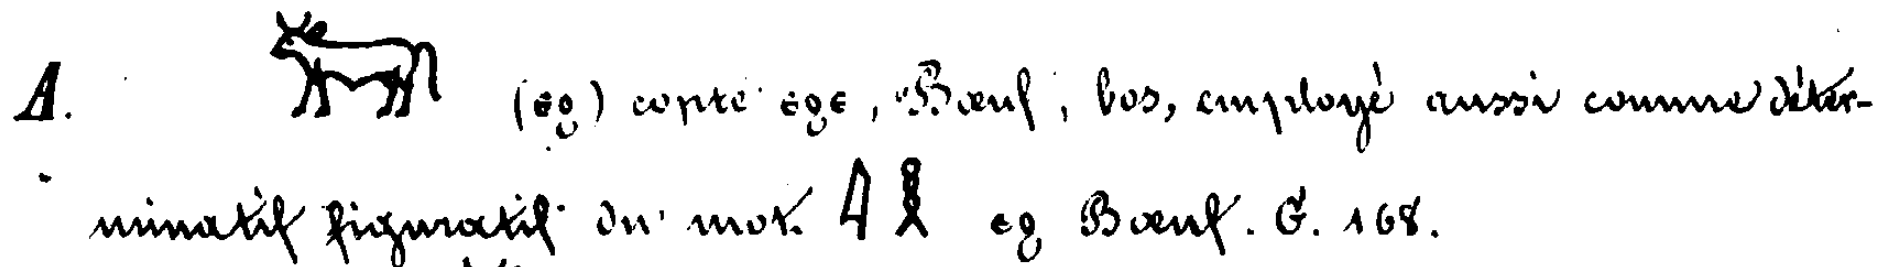 A. 𓃒 (ⲉϩ) copte ⲉϩⲉ, Bœuf, bos, employé aussi comme déter-
minatif figuratif du mot 𓇋𓎛 ⲉϩ Bœuf. G. 168.